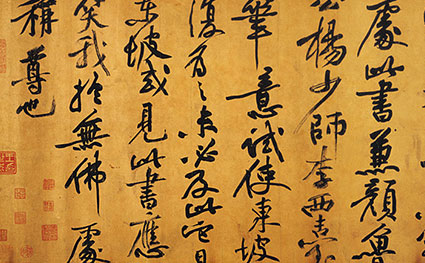 處此書兼顏魯
公楊少師李西臺
筆意試使東坡
復為之未必及此它日
東坡或見此書應
笑我於無佛處
稱尊也